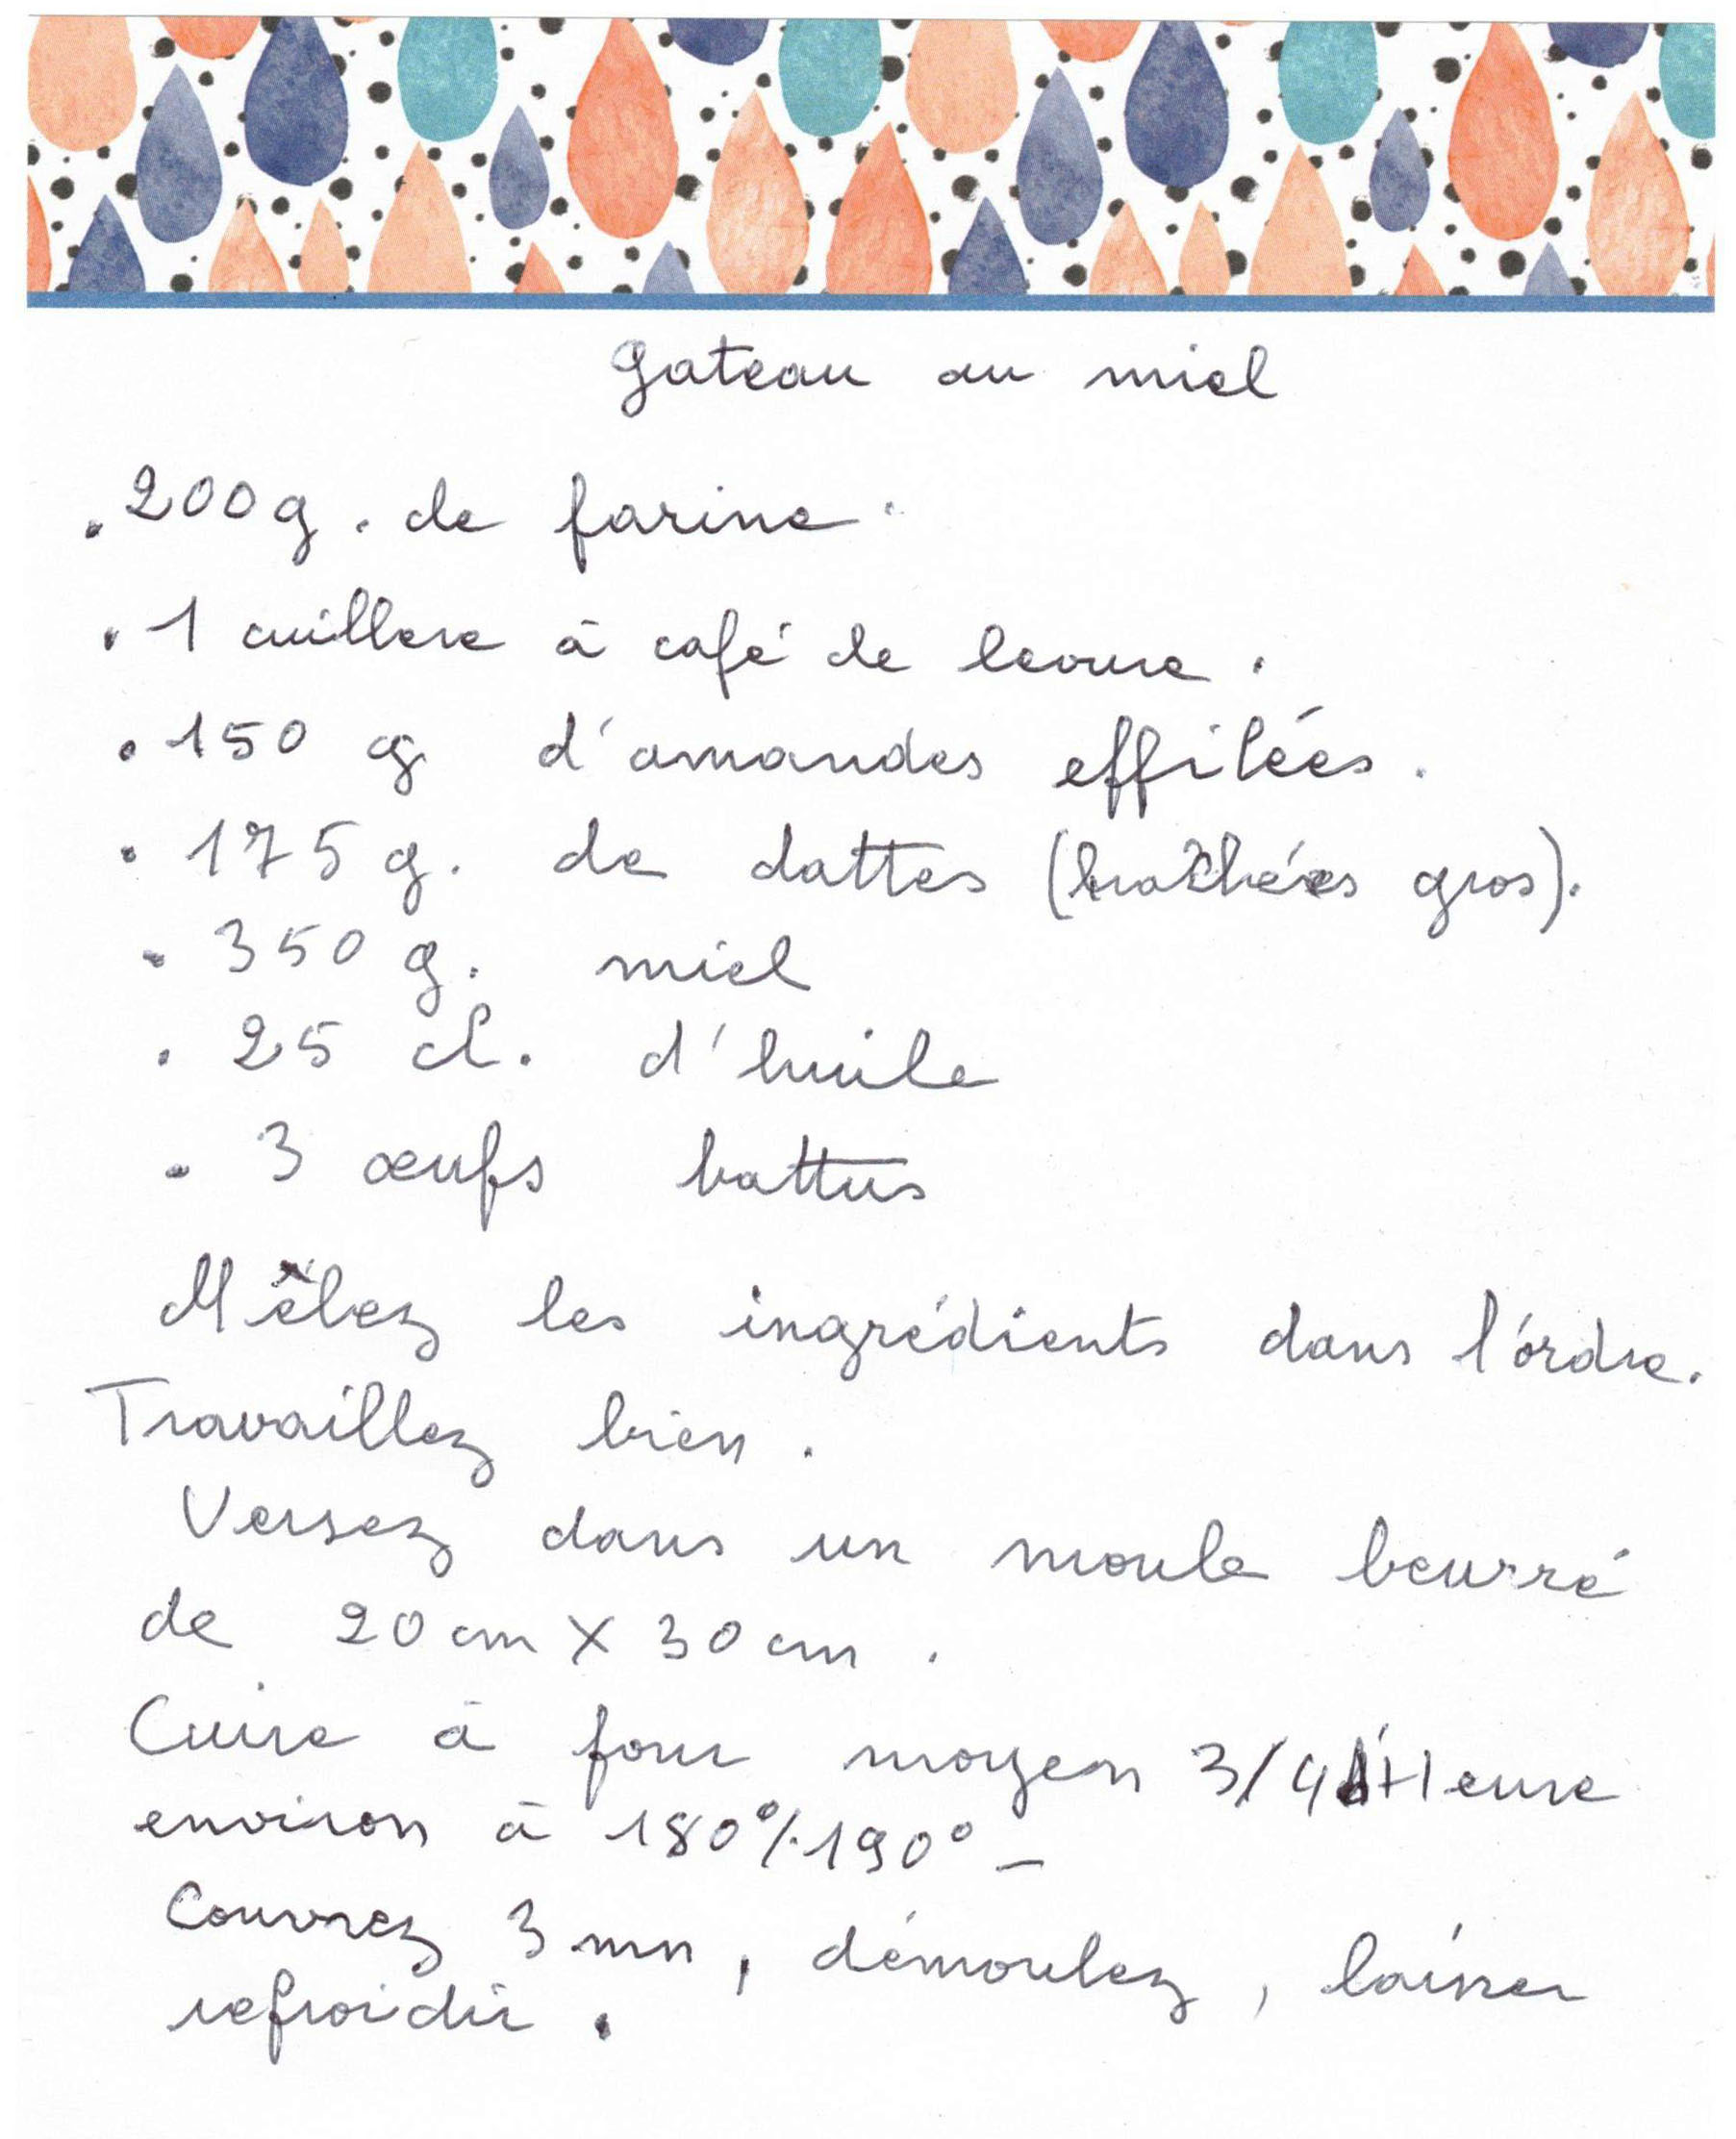 Gateau au miel
. 200g. de farine.
. 1 cuillere à café de levure.
. 150 g d'amandes effilées.
. 175 g. de dattes (hachées gros).
. 350 g. miel
. 25 cl. d'huile
. 3 œufs battus
Mêlez les ingrédients dans l'ordre.
Travaillez bien.
Versez dans un moule beurré
de 20 cm X 30 cm.
Cuire à four moyen 3/4 d'Heure
environ à 180°/190° -
Couvrez 3 mn, démoulez, laisser
refroidir.